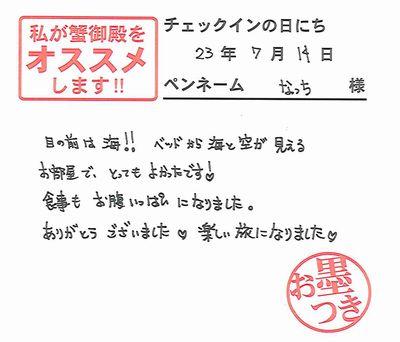 私が蟹御殿を
オススメ
します!!
チェックインの日にち
23年 7月 19日
ペンネーム なっち 様
目の前は 海!! ベッドから 海と 空が 見える
お部屋で、とっても よかったです♡
食事も お腹いっぱい になりました。
ありがとう ございました♡ 楽しい 旅になりました♡
お墨つき